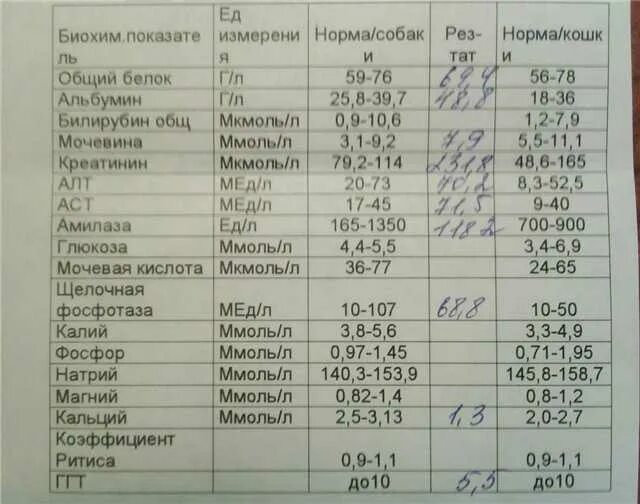 Биохим.показатель Ед измерения Норма/собаки Рез-тат Норма/кошки
Общий белок Г/л 59-76 69,4 56-78
Альбумин Г/л 25,8-39,7 48,8 18-36
Билирубин общ Мкмоль/л 0,9-10,6 1,2-7,9
Мочевина Ммоль/л 3,1-9,2 7,9 5,5-11,1
Креатинин Мкмоль/л 79,2-114 231,8 48,6-165
АЛТ МЕд/л 20-73 70,2 8,3-52,5
АСТ МЕд/л 17-45 71,5 9-40
Амилаза Ед/л 165-1350 1182 700-900
Глюкоза Ммоль/л 4,4-5,5 3,4-6,9
Мочевая кислота Мкмоль/л 36-77 24-65
Щелочная
фосфотаза МЕд/л 10-107 68,8 10-50
Калий Ммоль/л 3,8-5,6 3,3-4,9
Фосфор Ммоль/л 0,97-1,45 0,71-1,95
Натрий Ммоль/л 140,3-153,9 145,8-158,7
Магний Ммоль/л 0,82-1,4 0,8-1,2
Кальций Ммоль/л 2,5-3,13 1,3 2,0-2,7
Коэффициент
Ритиса 0,9-1,1 0,9-1,1
ГГТ до10 5,5 до10